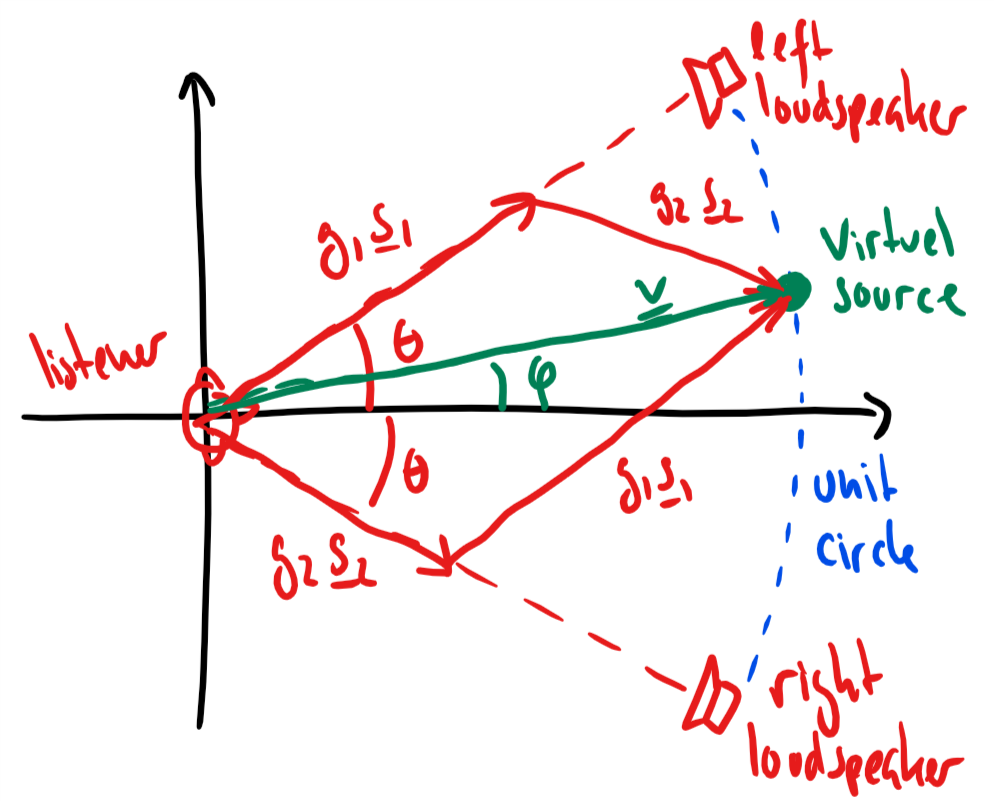 left
loudspeaker
g₁s₁
g₂s₂
virtuel
source
v
listener
θ
φ
θ
g₁s₁
unit
circle
g₂s₂
right
loudspeaker